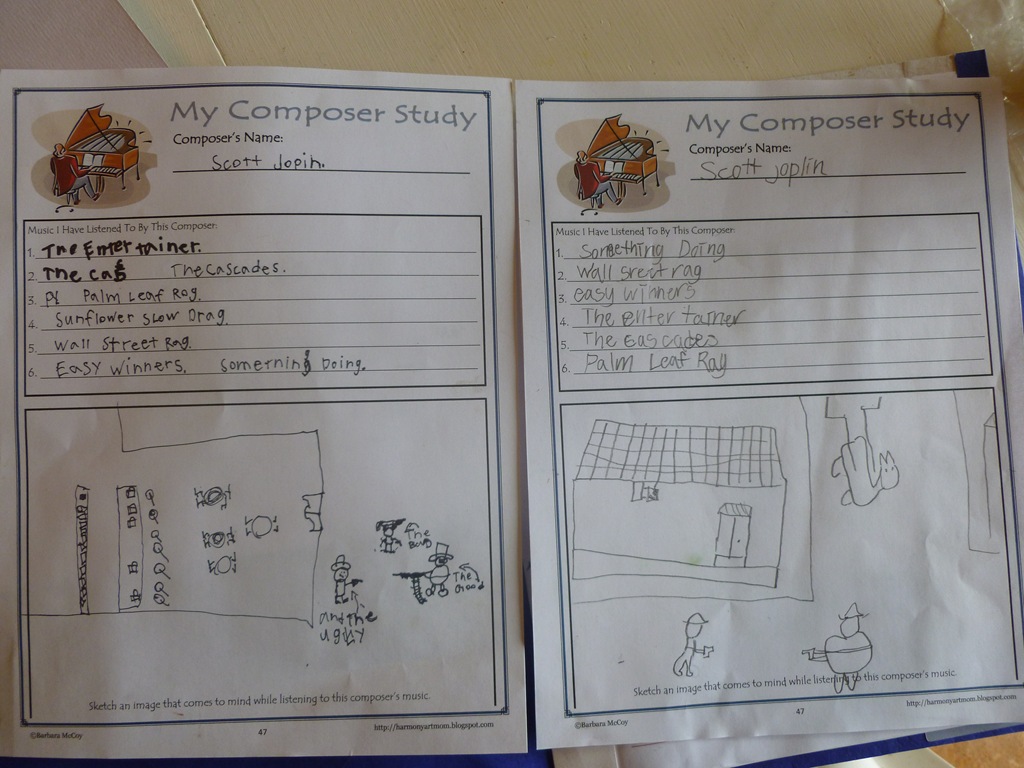 My Composer Study
Composer's Name:
Scott Jopin.
Music I Have Listened To By This Composer:
1. The Entertainer.
2. The cas The Cascades.
3. Pl Palm Leaf Rag.
4. Sunflower Slow Drag.
5. Wall Street Rag.
6. Easy winners. Somerning Doing.
The Bad
The Good
and the
ugly
Sketch an image that comes to mind while listening to this composer's music.
©Barbara McCoy
47
http://harmonyartmom.blogspot.com
My Composer Study
Composer's Name:
Scott joplin
Music I Have Listened To By This Composer:
1. Something Doing
2. Wall sreet rag
3. easy winners
4. The enter tainer
5. The Cascades
6. Palm Leaf Rag
Sketch an image that comes to mind while listening to this composer's music.
©Barbara McCoy
47
http://harmonyartmom.blogspot.com